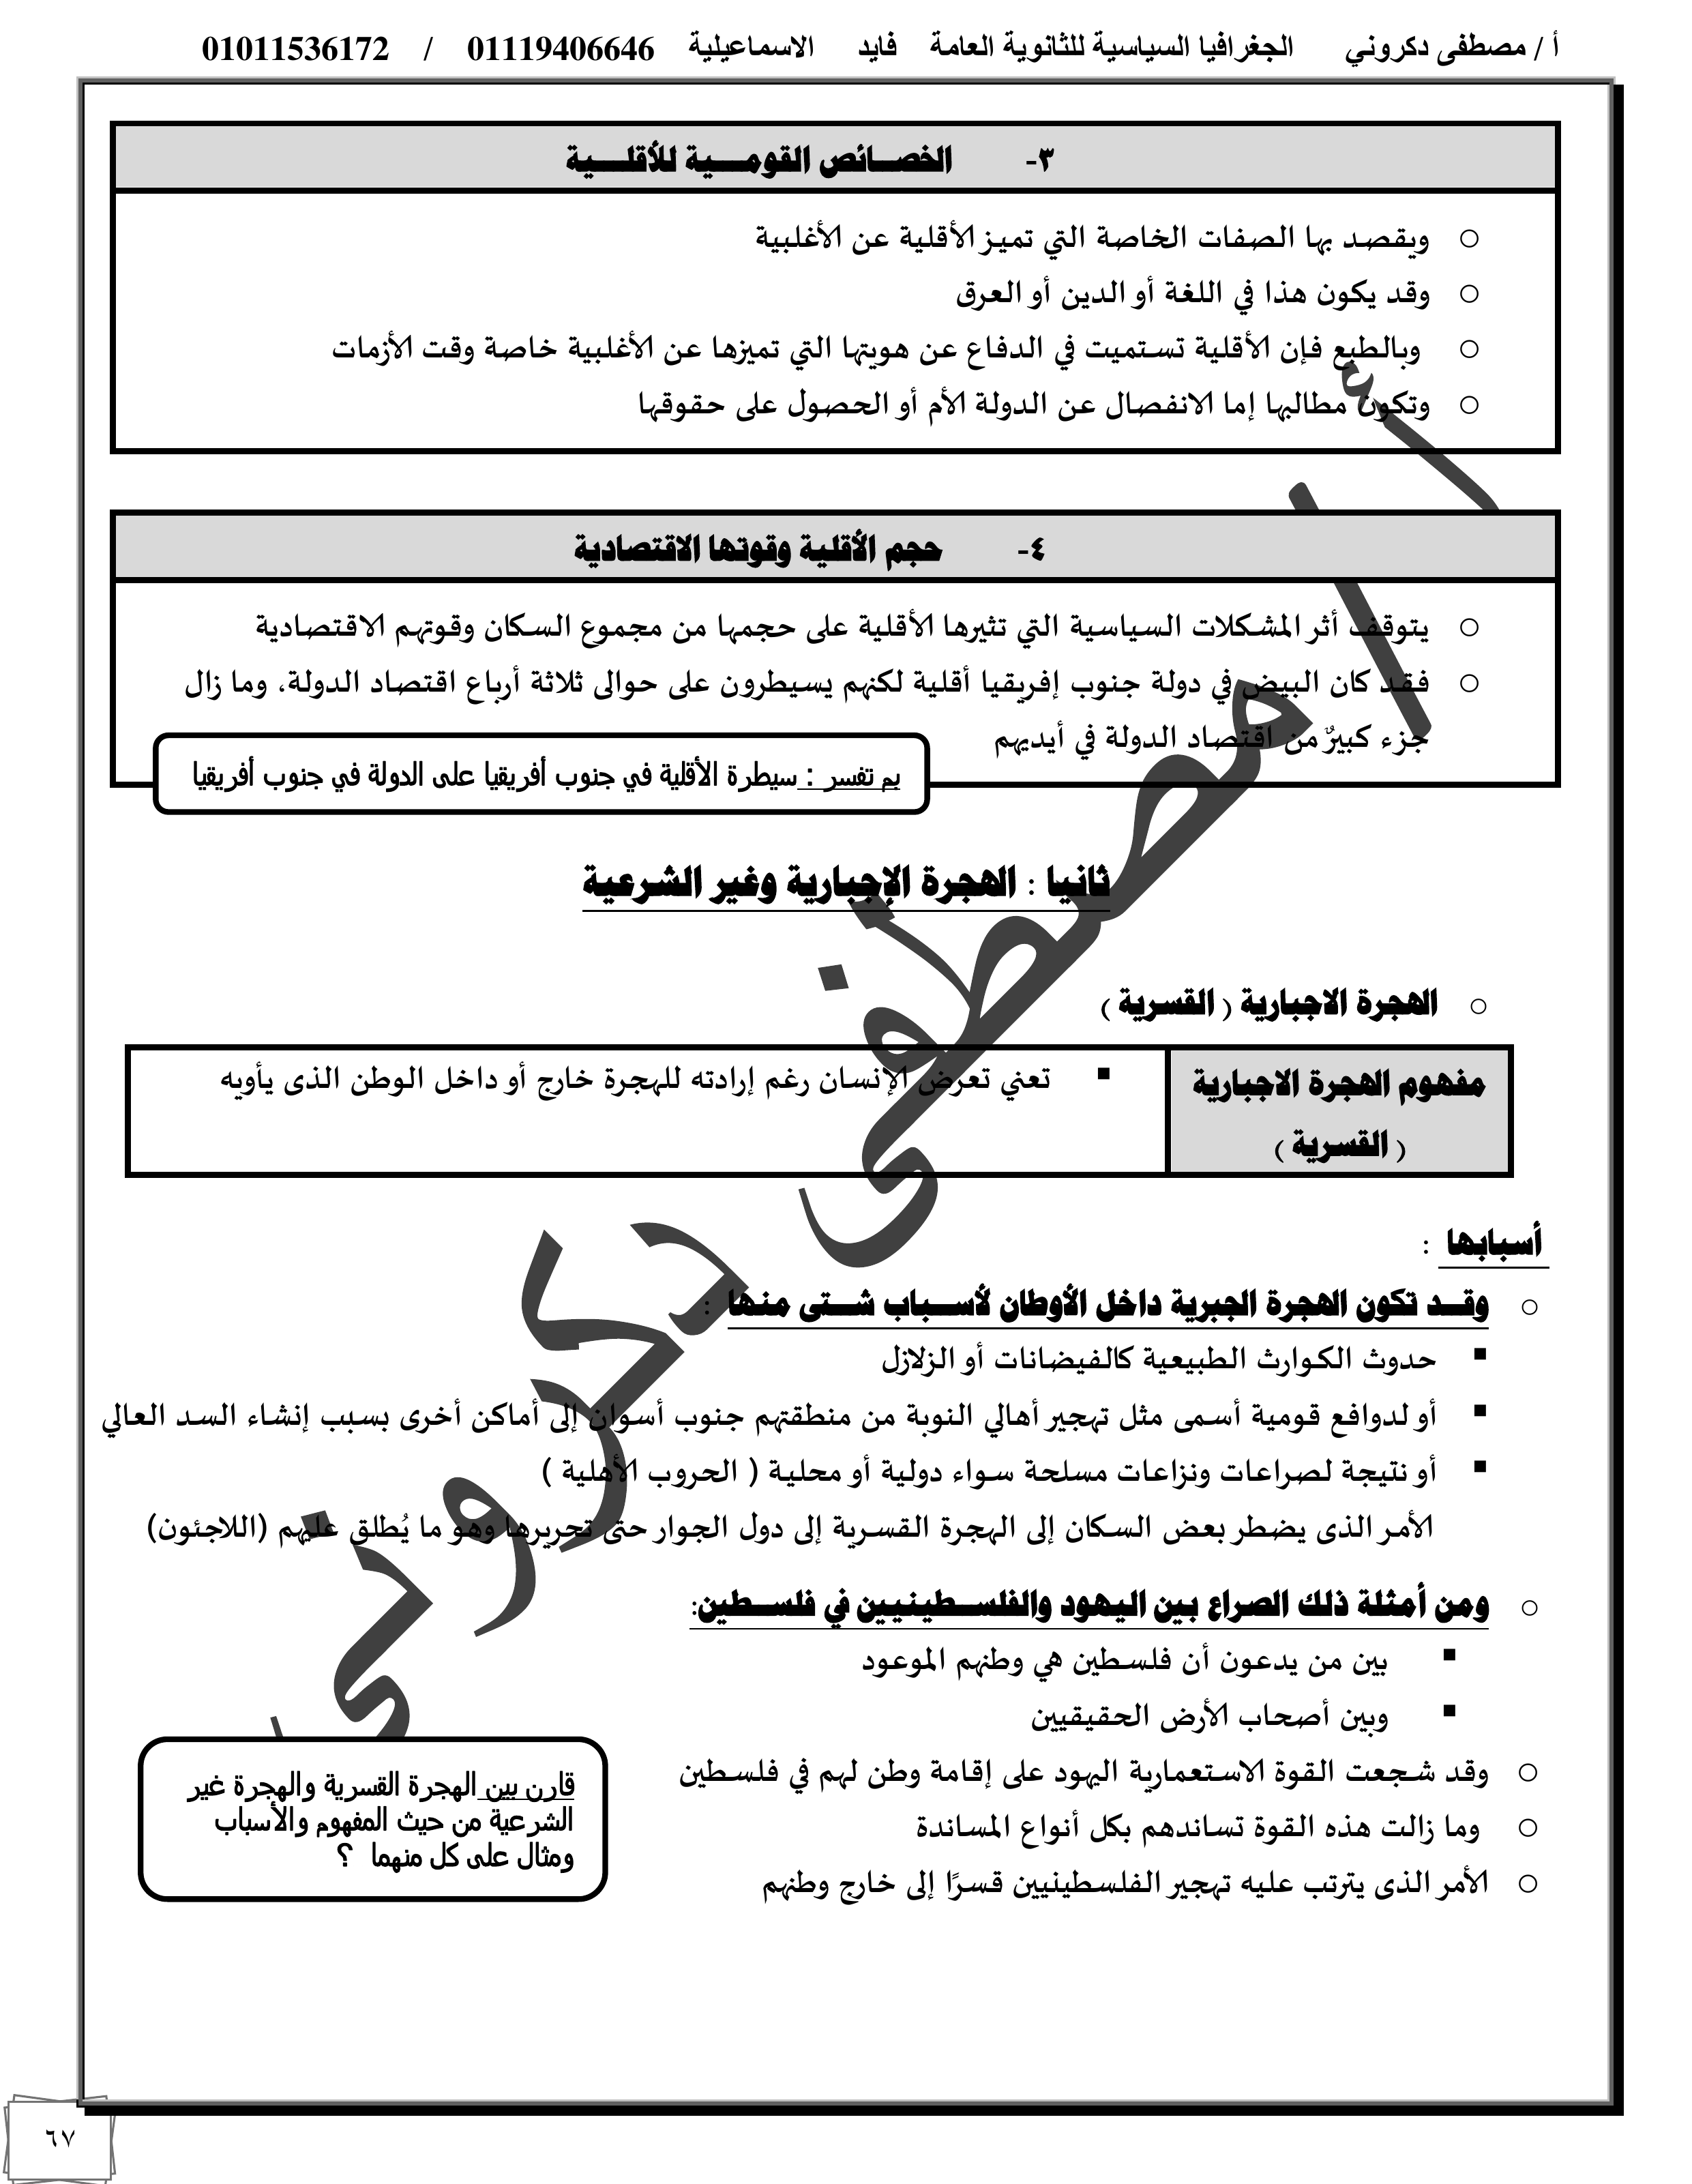 أ / مصطفى دكروني الجغرافيا السياسية للثانوية العامة فايد الاسماعيلية 01119406646 / 01011536172
٣- الخصـــائص القومـــــية للأقلـــــية
ويقصد بها الصفات الخاصة التي تميز الأقلية عن الأغلبية
وقد يكون هذا في اللغة أو الدين أو العرق
وبالطبع فإن الأقلية تستميت في الدفاع عن هويتها التي تميزها عن الأغلبية خاصة وقت الأزمات
وتكون مطالبها إما الانفصال عن الدولة الأم أو الحصول على حقوقها
٤- حجم الأقلية وقوتها الاقتصادية
يتوقف أثر المشكلات السياسية التي تثيرها الأقلية على حجمها من مجموع السكان وقوتهم الاقتصادية
فقد كان البيض في دولة جنوب إفريقيا أقلية لكنهم يسيطرون على حوالى ثلاثة أرباع اقتصاد الدولة، وما زال
جزء كبيرٌ من اقتصاد الدولة في أيديهم
بم تفسر : سيطرة الأقلية في جنوب أفريقيا على الدولة في جنوب أفريقيا
ثانيا : الهجرة الإجبارية وغير الشرعية
الهجرة الاجبارية ( القسرية )
مفهوم الهجرة الاجبارية
( القسرية )
تعني تعرض الإنسان رغم إرادته للهجرة خارج أو داخل الوطن الذى يأويه
أسبابها :
وقـــد تكون الهجرة الجبرية داخل الأوطان لأســـباب شـــتى منها :
حدوث الكوارث الطبيعية كالفيضانات أو الزلازل
أو لدوافع قومية أسمى مثل تهجير أهالي النوبة من منطقتهم جنوب أسوان إلى أماكن أخرى بسبب إنشاء السد العالي
أو نتيجة لصراعات ونزاعات مسلحة سواء دولية أو محلية ( الحروب الأهلية )
الأمر الذى يضطر بعض السكان إلى الهجرة القسرية إلى دول الجوار حتى تحريرها وهو ما يُطلق عليهم (اللاجئون)
ومن أمثلة ذلك الصراع بين اليهود والفلســـطينيين في فلســـطين:
بين من يدعون أن فلسطين هي وطنهم الموعود
وبين أصحاب الأرض الحقيقيين
وقد شجعت القوة الاستعمارية اليهود على إقامة وطن لهم في فلسطين
وما زالت هذه القوة تساندهم بكل أنواع المساندة
الأمر الذى يترتب عليه تهجير الفلسطينيين قسرًا إلى خارج وطنهم
قارن بين الهجرة القسرية والهجرة غير
الشرعية من حيث المفهوم والأسباب
ومثال على كل منهما ؟
أ / مصطفى دكروني
٦٧